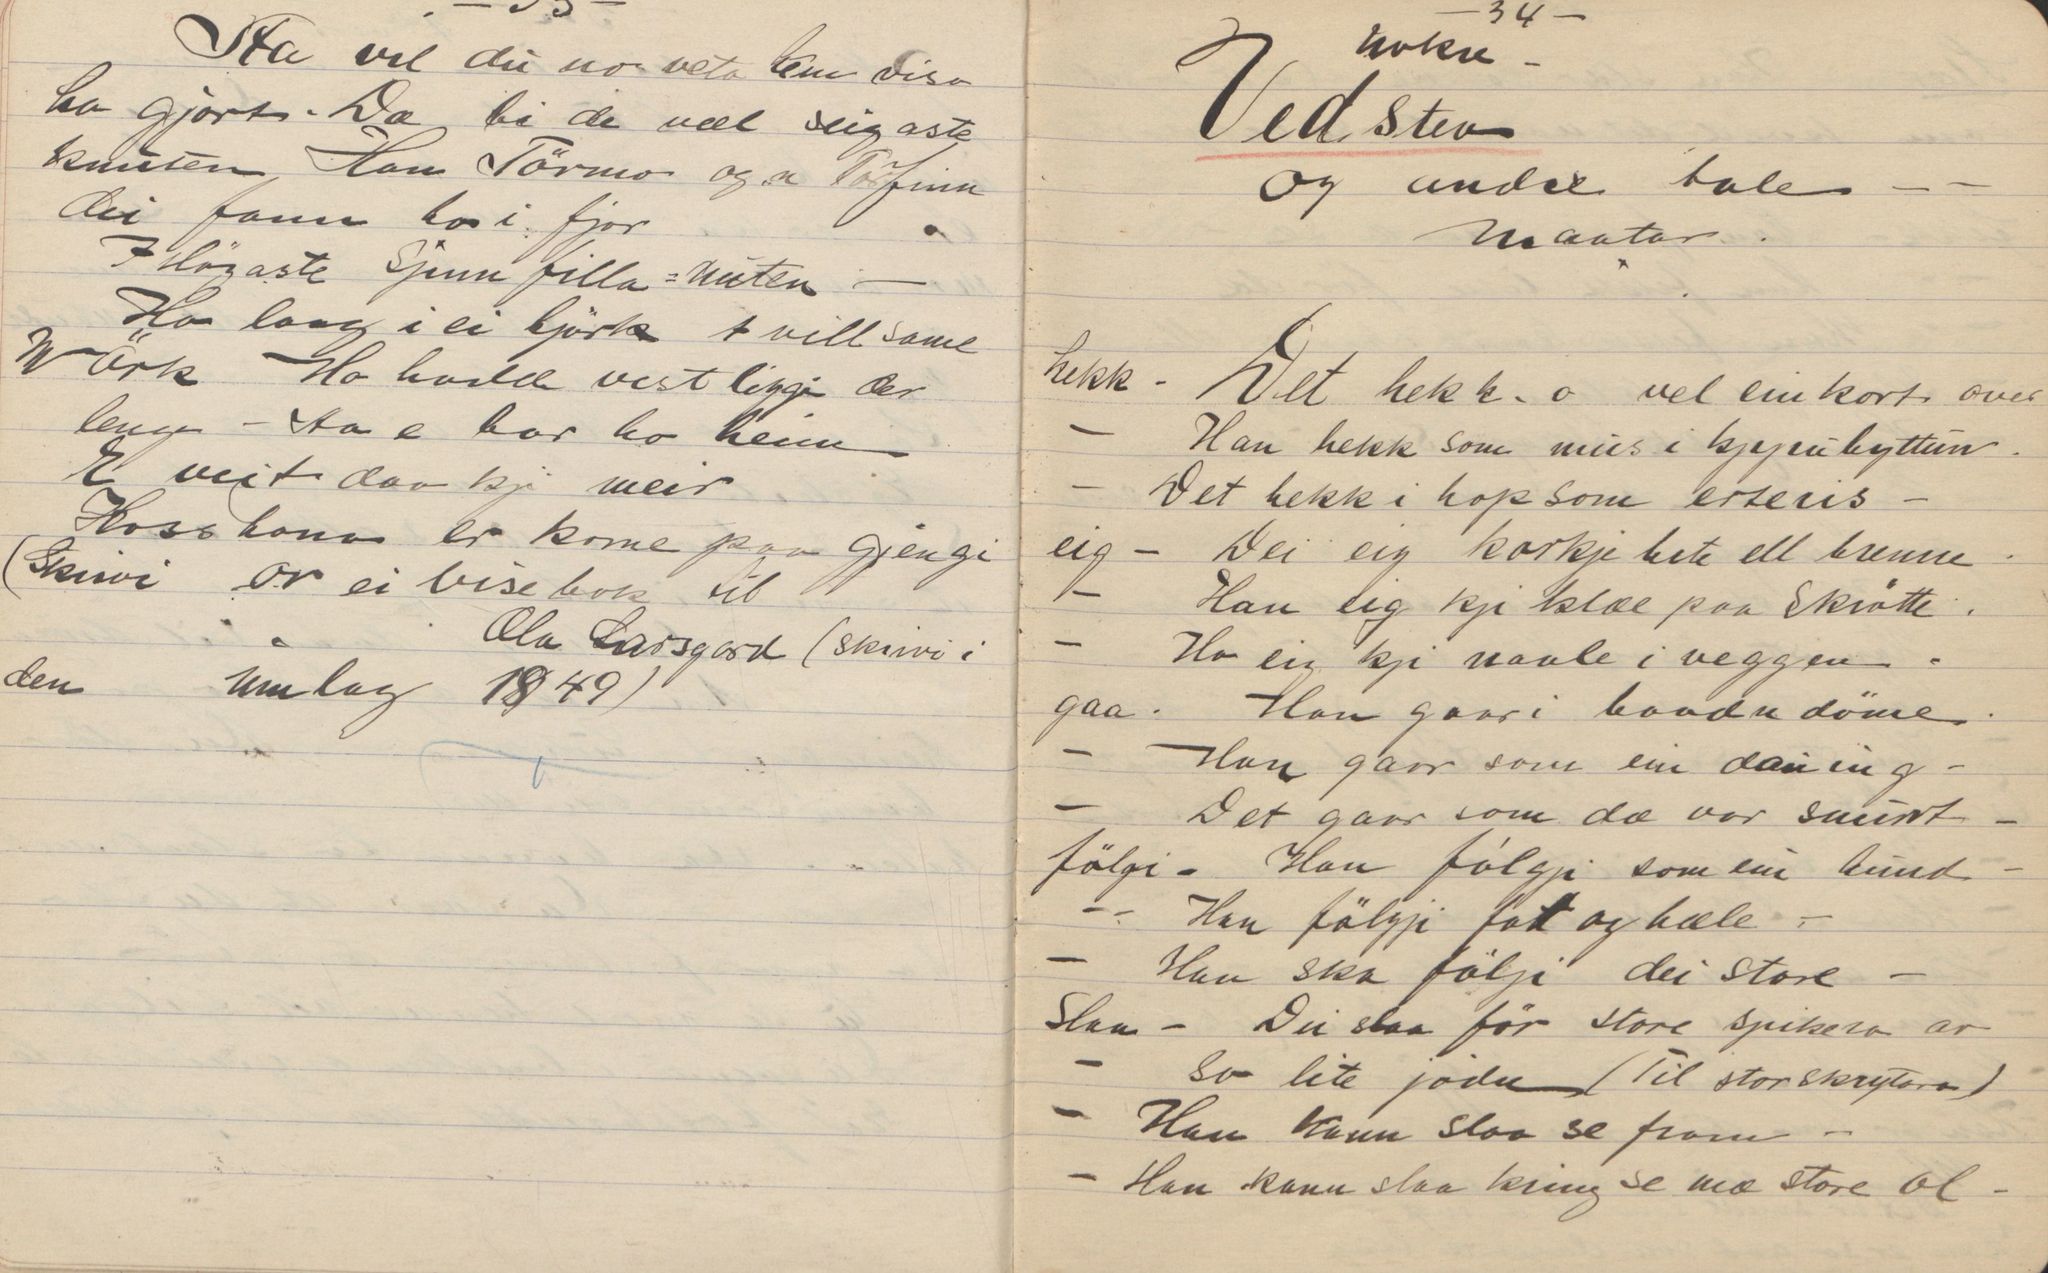 - 33 -
Sta vil du no veta kem visa
ha gjort. Da bi de væl seigaste
knuten Han Törmo og n Torfinn
dei fann ho i fjor
I Högaste Sjinnfilla=nuten —
Ho laag i ei björk t villsame
Mörk Ho hadde vist liggji der
lenge - sta e bar ho heim
E veit daa kji meir
Hoss hono er kome paa gjengi
(Skrivi or ei visebok til
Ola Larsgard (skrivi i
den umlag 1849)
- 34 -
Nokre -
Vedstev
og andre tale - -
maatar.
hekk - Det hekk. o vel einkort over
- Han hekk som mus i kjypubyttun.
- Det hekk i hop som erteris -
eig - Dei eig korkje bite ell brenne.
- Han eig kji klæe paa Skrótte.
- Ho eig kji naale i veggen.
gaa. Han gaar i baad n döme.
- Han gaar som ein daning -
- Det gaar som dæ var smurt -
fölgi - Han fölgji som ein hund -
-- Han fölgji fot og hæle -
- Han ska följi dei store -
Slaa - Dei slaa för store spikera av
- so lite jödn (Til storskrytara)
- Han kann slaa se fram -
- Han kann slaa kring se mæ store ol -